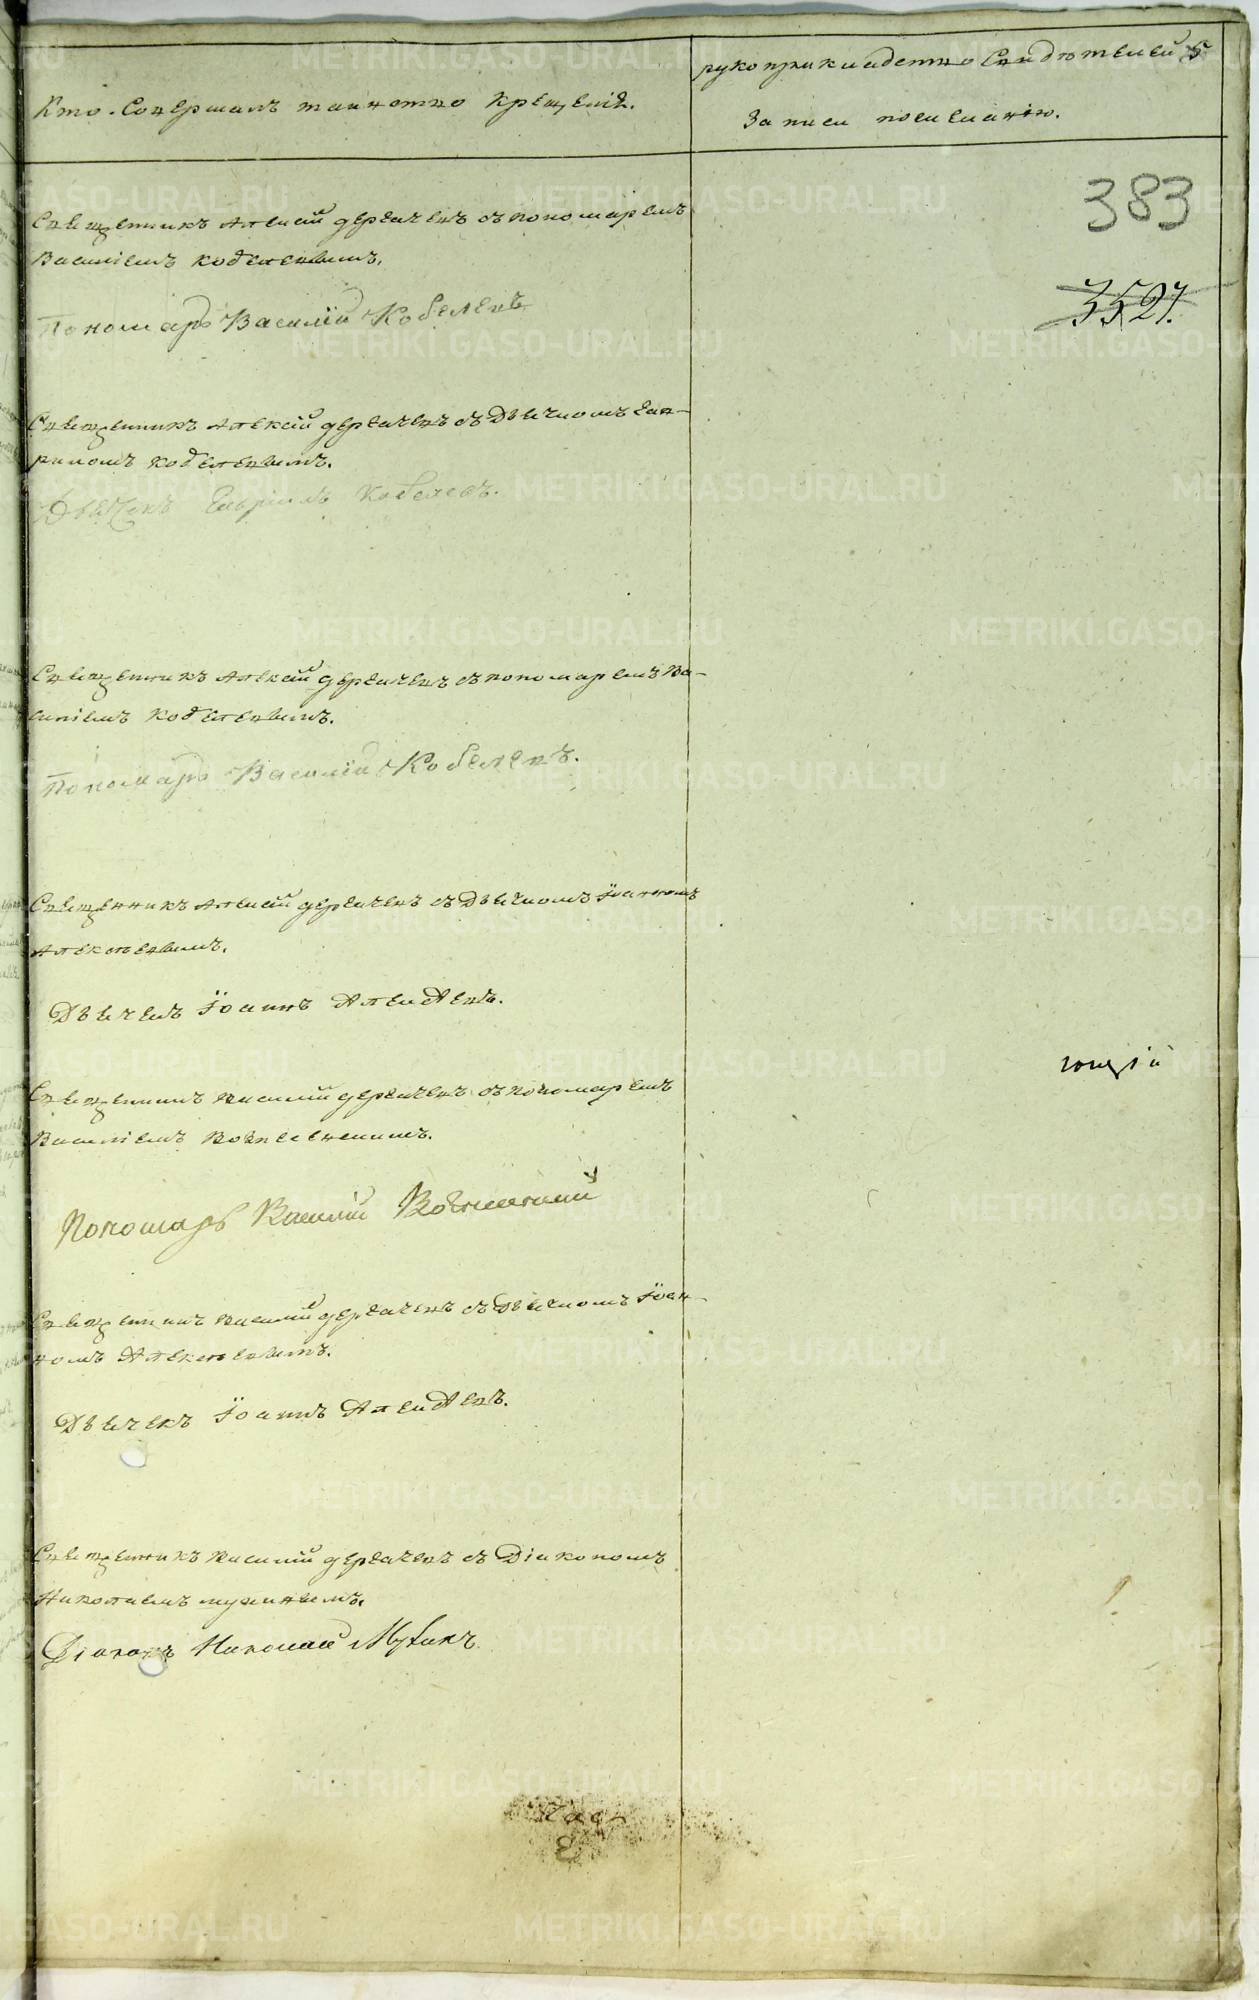 Кто Совершалъ таинство Крещенія.
рукоприкладство Свидѣтелей
записи по желанію.
383
3527.
Священникъ Алексій Дерябинъ съ пономаремъ
Василіемъ Кобелевымъ.
Пономарь Василій Кобелевъ
Священникъ Алексій Дерябинъ съ Дьячкомъ Гав-
риломъ Кобелевымъ.
Дьячекъ Гаврилъ Кобелевъ.
Священникъ Алексій Дерябинъ съ пономаремъ Ва-
силіемъ Кобелевымъ.
Пономарь Василій Кобелевъ.
Священникъ Алексій Дерябинъ съ Дьячкомъ Іоанномъ
Алексѣевымъ.
Дьячекъ Іоаннъ Алексѣевъ.
Священникъ Василій Дерябинъ съ пономаремъ
Василіемъ Вознесенскимъ.
Пономарь Василій Вознесенскій
Священникъ Василій Дерябинъ съ Дьячкомъ Іоан-
номъ Алексѣевымъ.
Дьячекъ Іоаннъ Алексѣевъ.
Священникъ Василій Дерябинъ съ Діакономъ
Николаемъ Мухинымъ.
Діаконъ Николай Мухинъ
METRIKI.GASO-URAL.RU